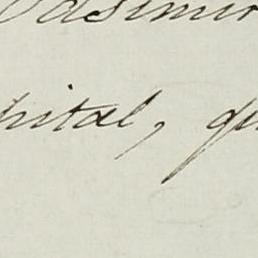 Casimir
pital, qu